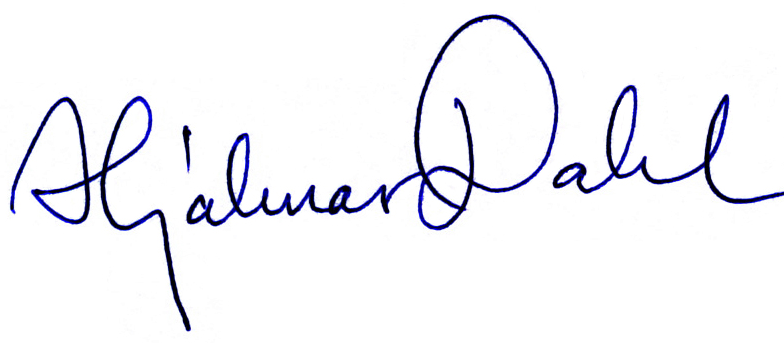 Hjalmar Dahl